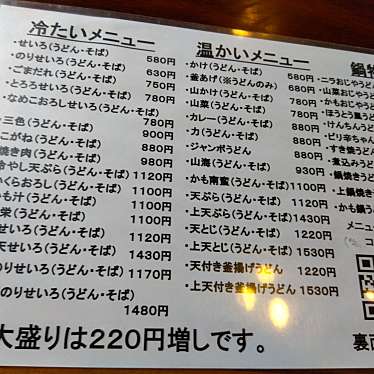 冷たいメニュー
・せいろ(うどん・そば) 580円
・のりせいろ(うどん・そば) 630円
・ごまだれ(うどん・そば) 750円
・とろろせいろ(うどん・そば) 780円
・なめこおろしせいろ(うどん・そば) 780円
三色(うどん・そば) 900円
こがね(うどん・そば) 880円
焼き肉(うどん・そば) 980円
冷やし天ぷら(うどん・そば) 1120円
くらおろし(うどん・そば) 1100円
も汁(うどん・そば) 1100円
栄(うどん・そば) 1120円
せいろ(うどん・そば) 1120円
天せいろ(うどん・そば) 1430円
のりせいろ(うどん・そば) 1170円
のりせいろ(うどん・そば) 1480円
大盛りは220円増しです。
温かいメニュー
・かけ(うどん・そば) 580円
・釜あげ(※うどんのみ) 630円
・山かけ(うどん・そば) 780円
・山菜(うどん・そば) 780円
・カレー(うどん・そば) 780円
・力(うどん・そば) 780円
・ジャンボうどん 900円
・山海(うどん・そば) 930円
・かも南蛮(うどん・そば) 1100円
・天ぷら(うどん・そば) 1120円
・上天ぷら(うどん・そば) 1430円
・天とじ(うどん・そば) 1220円
・上天とじ(うどん・そば) 1530円
・天付き釜揚げうどん 1220円
・上天付き釜揚げうどん 1530円
鍋物
・ニラおじやうど
・山菜おじやう
・かもおじやうど
・ほうとう風う
・けんちんうど
・ピリ辛ちゃん
・すき焼きうど
・煮込みうど
・鍋焼き
・上鍋焼き
・かも鍋う
メニュ
コ
裏面